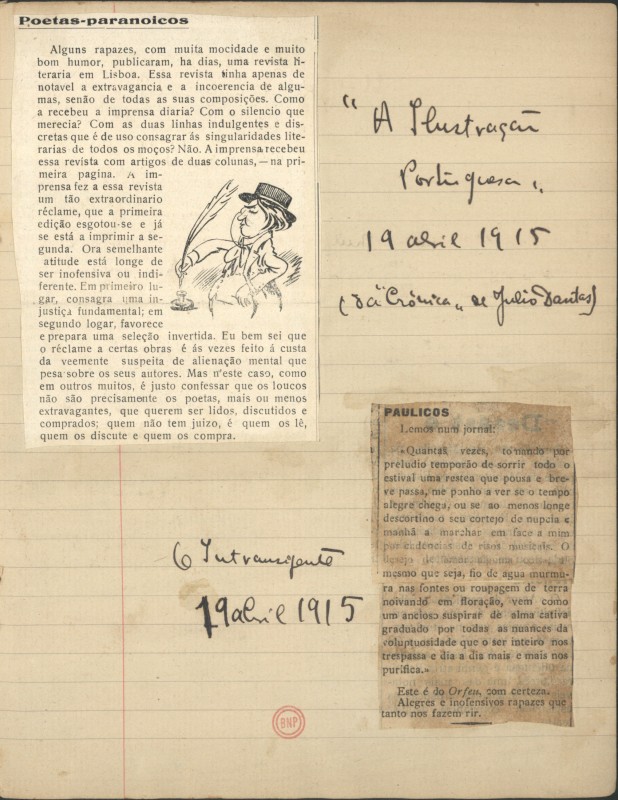 Poetas-paranoicos
Alguns rapazes, com muita mocidade e muito
bom humor, publicaram, ha dias, uma revista li-
teraria em Lisboa. Essa revista tinha apenas de
notavel a extravagancia e a incoerencia de algu-
mas, senão de todas as suas composições. Como
a recebeu a imprensa diaria? Com o silencio que
merecia? Com as duas linhas indulgentes e dis-
cretas que é de uso consagrar ás singularidades lite-
rarias de todos os moços? Não. A imprensa recebeu
essa revista com artigos de duas colunas,—na pri-
meira pagina. A im-
prensa fez a essa revista
um tão extraordinario
réclame, que a primeira
edição esgotou-se e já
se está a imprimir a se-
gunda. Ora semelhante
atitude está longe de
ser inofensiva ou indi-
ferente. Em primeiro lu-
gar, consagra uma in-
justiça fundamental; em
segundo logar, favorece
e prepara uma seleção invertida. Eu bem sei que
o réclame a certas obras é ás vezes feito á custa
da veemente suspeita de alienação mental que
pesa sobre os seus autores. Mas n'este caso, como
em outros muitos, é justo confessar que os loucos
não são precisamente os poetas, mais ou menos
extravagantes, que querem ser lidos, discutidos e
comprados; quem não tem juizo, é quem os lê,
quem os discute e quem os compra.
"A Ilustração
Portuguesa"
19 abril 1915
(da "Crónica" de Julio Dantas)
PAULICOS
Lemos num jornal:
«Quantas vezes, tomando por
preludio temporão de sorrir todo o
estival uma restea que pousa e bre-
ve passa, me ponho a ver se o tempo
alegre chega, ou se ao menos longe
descortino o seu cortejo de nupcia e
manhã a marchar em face a mim
por cadencias de risos musicais. O
mesmo que seja, fio de agua murmu-
ra nas fontes ou roupagem de terra
noivando em floração, vem como
um ancioso suspirar de alma cativa
graduado por todas as nuances da
voluptuosidade que o ser inteiro nos
trespassa e dia a dia mais e mais nos
purifica.»
Este é do Orfeu, com certeza.
Alegres e inofensivos rapazes que
tanto nos fazem rir.
O Intransigente
19 abril 1915
BNP